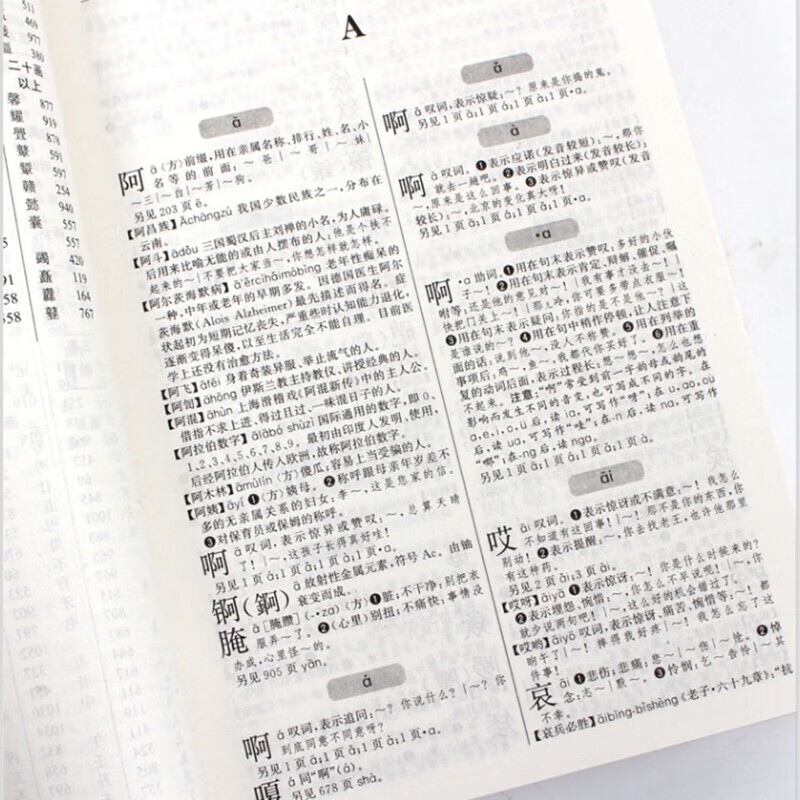 二十画
以上
馨 877
耀 919
A
ā
阿 ā〈方〉前缀,用在亲属名称、排行、姓、名、小
名等的前面:～爸|～哥|～妹|
～三|～台|～芳|～狗。
另见203页ē。
【阿昌族】Āchāngzú 我国少数民族之一,分布在
云南。
【阿斗】ādǒu 三国蜀汉后主刘禅的小名,为人庸碌。
后用来比喻无能的或由人摆布的人:他是个扶不
起来的～|不要把大家当～,你想怎样就怎样。
【阿尔茨海默病】ā'ěrcíhǎimòbìng 老年性痴呆的
一种,中年或老年的早期多发。因德国医生阿尔
茨海默(Alois Alzheimer)最先描述而得名。症
状起初为短期记忆丧失,严重些时认知能力退化,
逐渐变得呆傻,以至生活完全不能自理。目前医
学上还没有治愈方法。
【阿飞】āfēi 身着奇装异服、举止流气的人。
【阿訇】āhōng 伊斯兰教主持教仪、讲授经典的人。
【阿混】āhùn 上海滑稽戏《阿混新传》中的主人公。
借指不求上进、得过且过、一味混日子的人。
【阿拉伯数字】ālābó shùzì 国际通用的数字,即0、
1、2、3、4、5、6、7、8、9。最初由印度人发明、使用,
后经阿拉伯人传入欧洲,故称阿拉伯数字。
【阿木林】āmùlín〈方〉傻瓜;容易上当受骗的人。
【阿姨】āyí ❶〈方〉姨母。❷称呼跟母亲年岁差不
多的无亲属关系的妇女:李～,这是您家的信。
❸对保育员或保姆的称呼。
啊 ā叹词,表示惊异或赞叹:～,总算天晴
了!|～,这孩子长得真好哇!
另见1页á;1页ǎ;1页à;1页·a。
锕(錒) ā放射性金属元素,符号Ac。由铀
衰变而成。
腌 ā[腌臜](-·za)〈方〉❶脏;不干净:别把衣
服弄～了。❷(心里)别扭;不痛快:事情没
办成,心里怪～的。
另见905页yān。
á
啊 á叹词,表示追问:～?你说什么?|～?你
到底同意不同意呀?
另见1页ā;1页ǎ;1页à;1页·a。
嘎 á同"啊"(á)。
另见678页shà。
ǎ
啊 ǎ叹词,表示惊疑:～?原来是你捣的鬼。
另见1页ā;1页á;1页à;1页·a。
à
啊 à叹词。❶表示应诺(发音较短):～,那你
就去一趟吧。❷表示明白过来(发音较长):
～,原来是这么回事。❸表示惊异或赞叹(发音
较长):～,北京的变化真大呀!
另见1页ā;1页á;1页ǎ;1页·a。
·a
啊 ·a助词。❶用在句末表示赞叹:多好的小伙
子～!❷用在句末表示肯定、辩解、催促、嘱
咐等:还是他的意见对～!|我有事才没去～!|
快把门关上～!|那人呛,你可要多带点衣服～!
❸用在句末表示疑问:你指的是不是他～?|这
是谁说的～?❹用在句中稍作停顿,让人注意下
面的话:说到他～,没人不称赞。❺用在列举的
事项后:鸡～,鱼～,我都代你买好了。❻用在重
复的动词后面,表示过程长:想～想～,怎么也想
不起来。注意:"啊"常受到前一字韵母或韵尾的
影响而发生不同的音变,也可写成不同的字。在
a、e、i、o、ü后,读ia,可写作"呀";在u、ao、ou
后,读ua,可写作"哇";在-n后,读na,可写作
"哪";在-ng后,读nga。
另见1页ā;1页á;1页ǎ;1页à。
āi
哎 āi叹词。❶表示惊讶或不满意:～!我怎么
不知道有这回事!|～!那不是你的东西,你
别动!❷表示提醒:～,你去找老王,也许他那里
有这种药。
另见2页ǎi;3页ài。
【哎呀】āiyā ❶表示惊讶:～!你是什么时候来的?
❷表示埋怨、惋惜:～,你怎么不早说呢!|～,你
就少说两句吧!|～,这么好的机会错过了。
【哎哟】āiyō 叹词,表示惊讶、痛苦、惋惜等:～!都
晌午了!|～!摔得我好疼!|～!我怎么忘了这
件事!
哀 āi ❶悲伤;悲痛:悲～|～伤|～恸。❷悼
念:志～|默～。❸怜悯:乞～告怜|～其
不幸。
【哀兵必胜】āibīng-bìshèng《老子·六十九章》:"抗